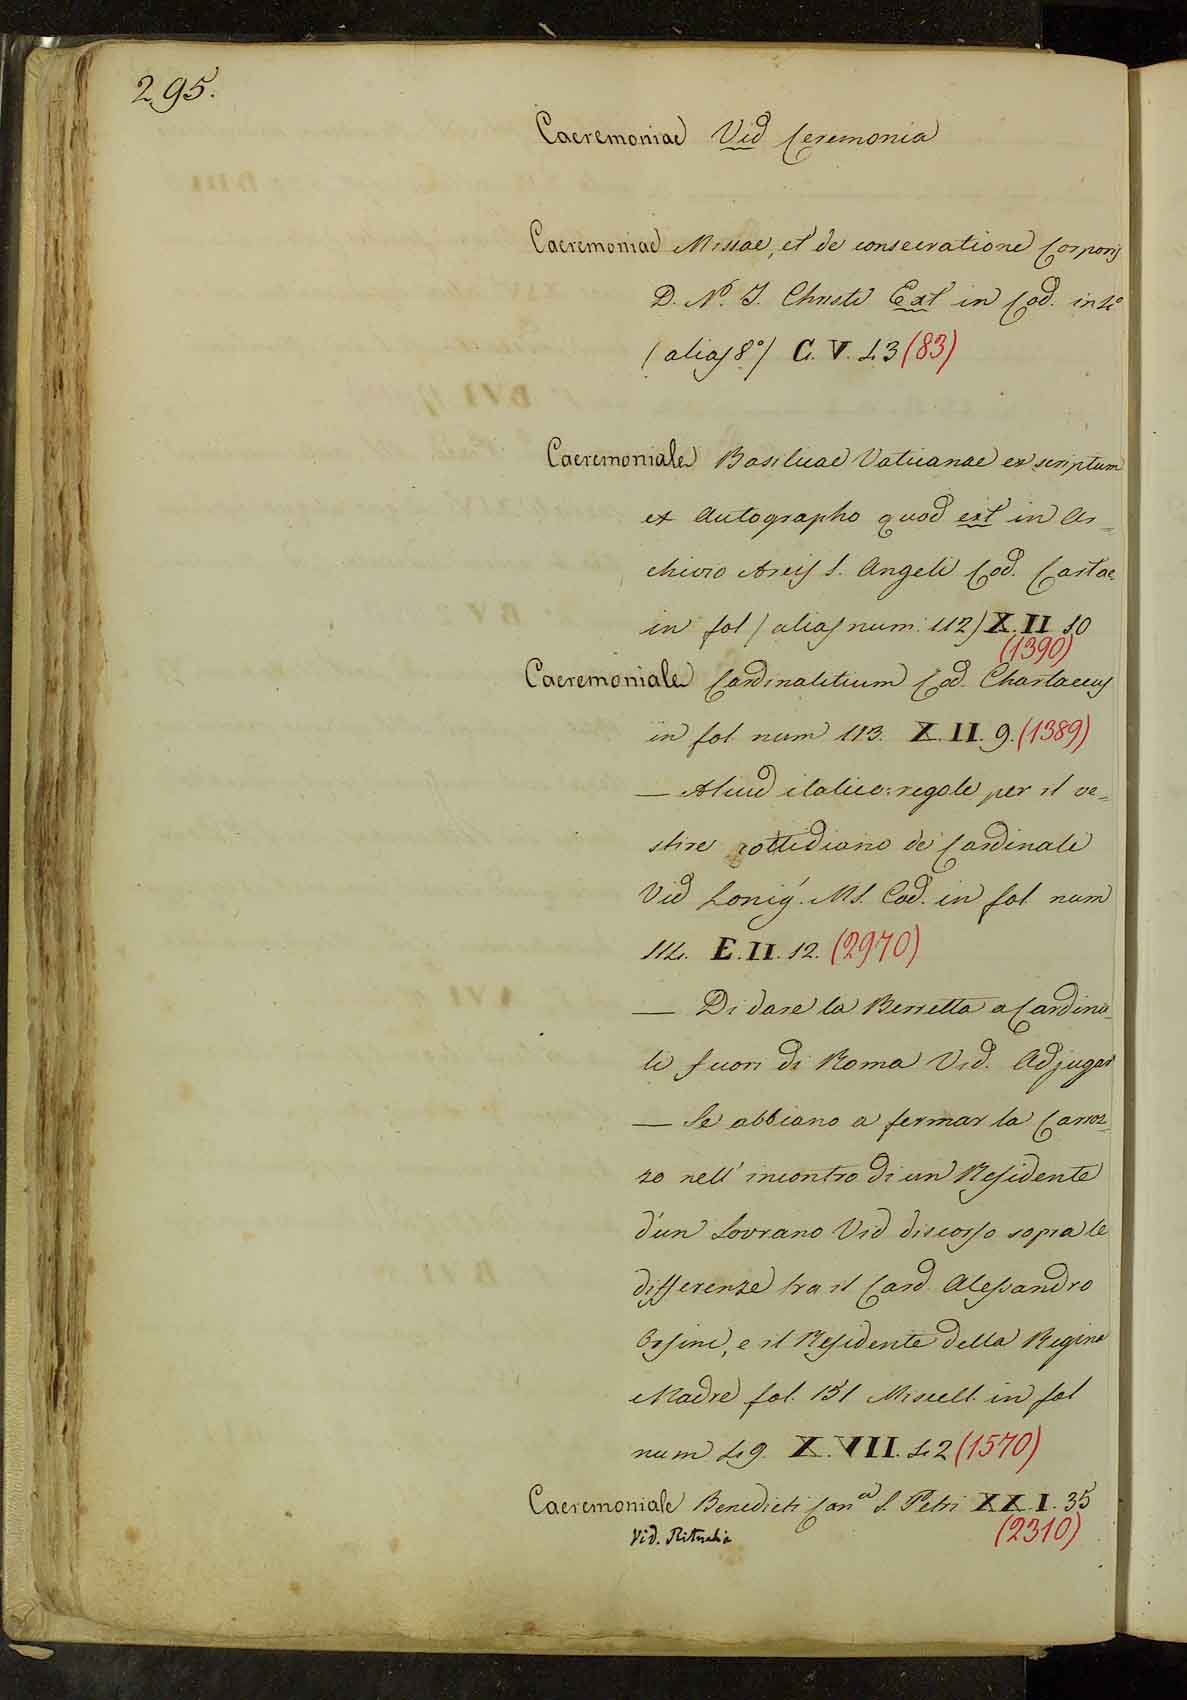 295.
Caeremoniae Vid Ceremonia
Caeremoniae Missae, et de consecratione Corporis
D. N. J. Christi Ext in Cod. in 4°
(alias 8°) C. V. 43 (83)
Caeremoniale Basilicae Vaticanae exscriptum
ex Autographo quod ext in Ar=
chivio Arcis S. Angeli Cod. Cartac.
in fol (alias num. 112) X. II 10
(1390)
Caeremoniale Cardinalitium Cod. Chartaceus
in fol num 113. X. II. 9. (1389)
— Aliud italico: regole per il ve=
stire cottidiano de' Cardinali
Vid Lonig. MS. Cod. in fol num
114. E. II. 12. (2970)
— Di dare la Berretta a Cardina=
li fuori di Roma Vid. Adjugar
— Se abbiano a fermar la Carroz=
za nell' incontro di un Residente
d'un Sovrano Vid discorso sopra le
differenze tra il Card Alessandro
Orsini, e il Residente della Regina
Madre fol. 151 Miscell. in fol
num 49. X. VII. 42 (1570)
Caeremoniale Benedicti Can.ci S. Petri XX. I. 35
Vid. Ritualia (2310)